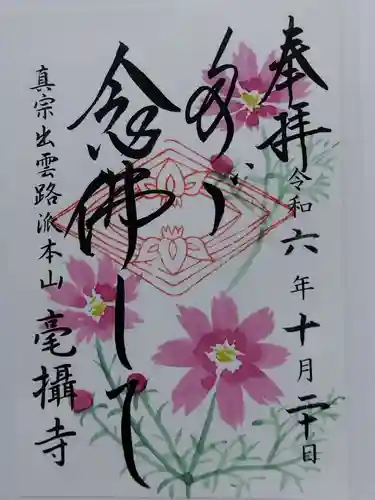 奉拝
令和六年十月二十日
念佛して
真宗出雲路派本山
毫攝寺